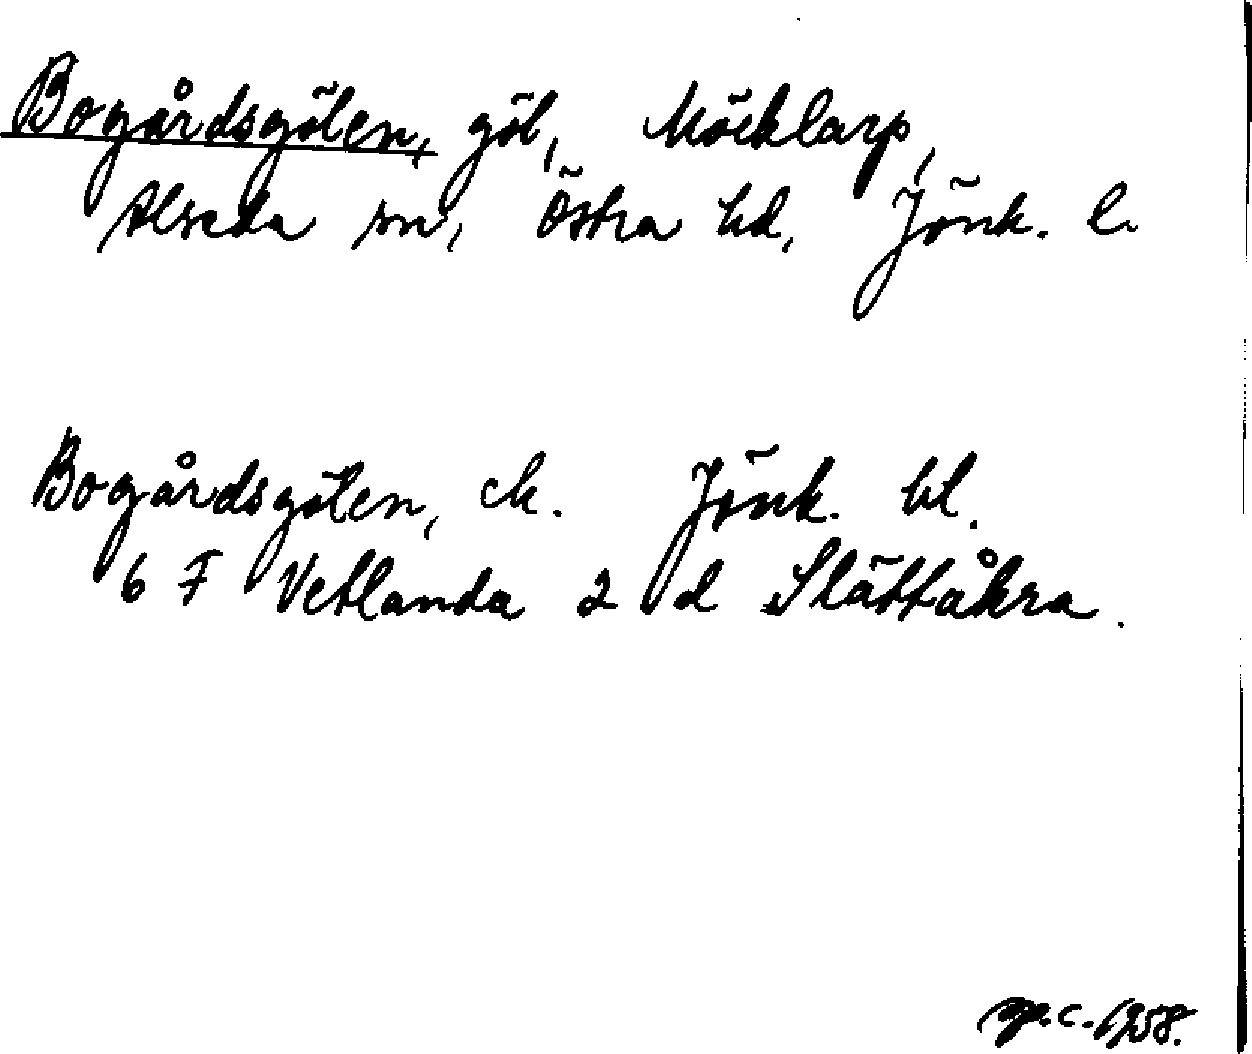 Bogårdsgölen, göl, Möcklarp,
Alseda sn, Östra hd, Jönk. l.
Bogårdsgölen, ek. Jönk. bl.
6 F Vetlanda 2 d Slättåkra.
1958.